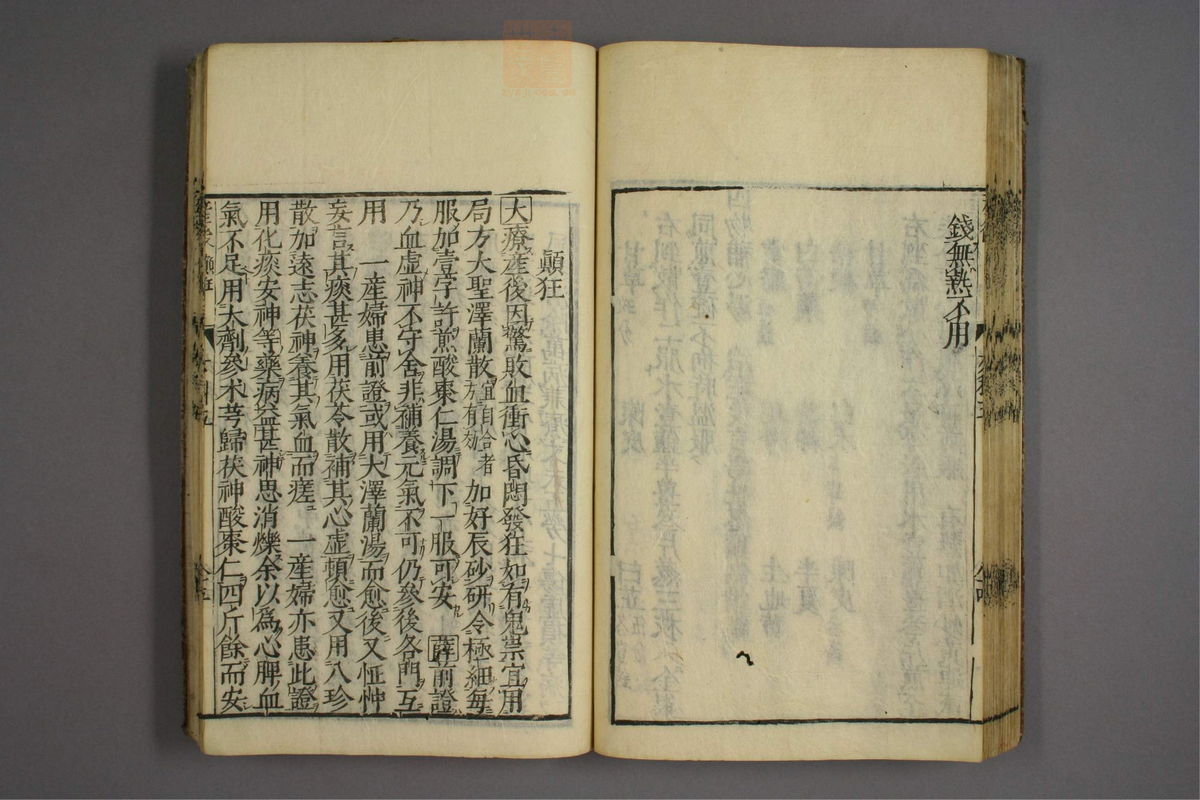 錢無熱不用
顛狂
大療産後因驚敗血衝心昏悶發狂如有鬼祟宜用
局方大聖澤蘭散加好辰砂研令極細每
服加壹字許煎酸棗仁湯調下一服可安 薛前證
乃血虛神不守舍非補養元氣不可仍參後各門互
用 一産婦患前證或用大澤蘭湯而愈後又怔忡
妄言其痰甚多用茯苓散補其心虛頓愈又用八珍
散加遠志茯神養其氣血而瘥 一産婦亦患此證
用化痰安神等藥病益甚神思消爍余以爲心脾血
氣不足用大劑參朮芎歸茯神酸棗仁四斤餘而安